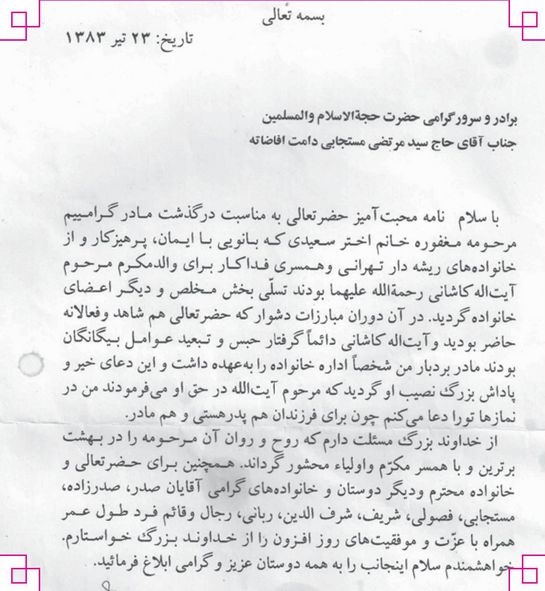 بسمه تعالی
تاریخ: ۲۳ تیر ۱۳۸۳
برادر و سرور گرامی حضرت حجة‌الاسلام والمسلمین
جناب آقای حاج سید مرتضی مستجابی دامت افاضاته
با سلام نامه محبت‌آمیز حضرتعالی به مناسبت درگذشت مادر گرامییم
مرحومه مغفوره خانم اختر سعیدی که بانویی با ایمان، پرهیزکار و از
خانواده‌های ریشه دار تهرانی وهمسری فداکار برای والدمکرم مرحوم
آیت‌اله کاشانی رحمةالله علیهما بودند تسلّی بخش مخلص و دیگر اعضای
خانواده گردید. در آن دوران مبارزات دشوار که حضرتعالی هم شاهد وفعالانه
حاضر بودید وآیت‌اله کاشانی دائماً گرفتار حبس و تبعید عوامل بیگانگان
بودند مادر بردبار من شخصاً اداره خانواده را به‌عهده داشت و این دعای خیر و
پاداش بزرگ نصیب او گردید که مرحوم آیت‌الله در حق او می‌فرمودند من در
نمازها تورا دعا می‌کنم چون برای فرزندان هم پدرهستی و هم مادر.
از خداوند بزرگ مسئلت دارم که روح و روان آن مرحومه را در بهشت
برترین و با همسر مکرّم واولیاء محشور گرداند. همچنین برای حضرتعالی و
خانواده محترم ودیگر دوستان و خانواده‌های گرامی آقایان صدر، صدرزاده،
مستجابی، فصولی، شریف، شرف الدین، ربانی، رجال وقائم فرد طول عمر
همراه با عزّت و موفقیت‌های روز افزون را از خداوند بزرگ خواستارم.
خواهشمندم سلام اینجانب را به همه دوستان عزیز و گرامی ابلاغ فرمائید.